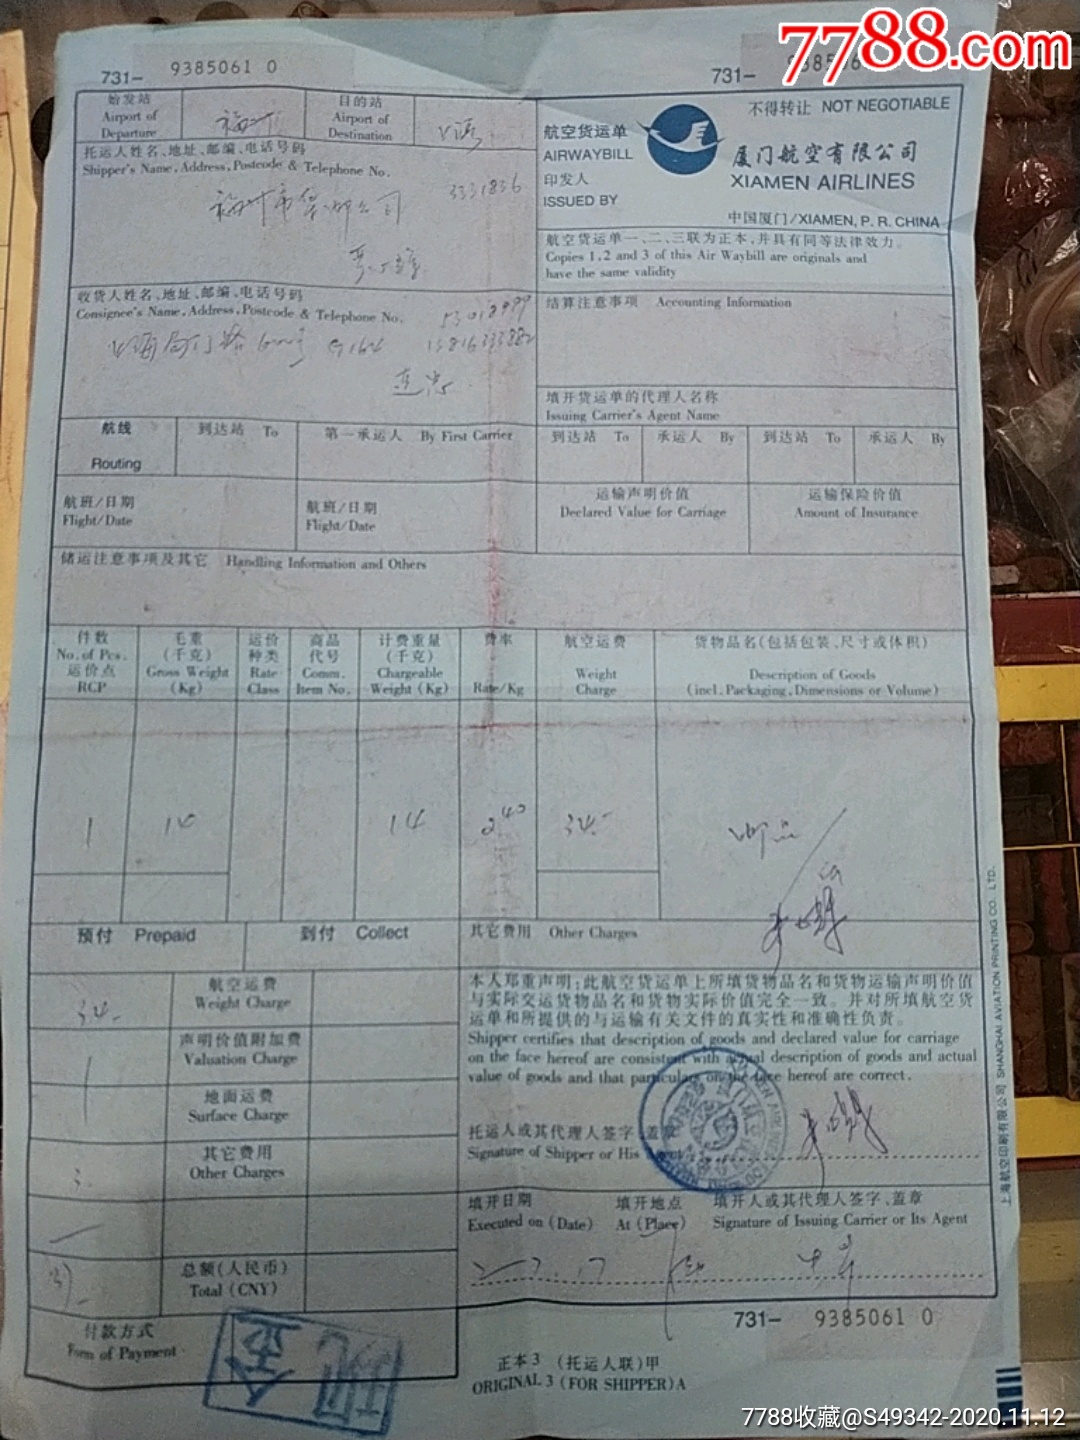 7788.com
731— 9385061 0
731—
始发站
Airport of
Departure
福州
目的站
Airport of
Destination
上海
不得转让 NOT NEGOTIABLE
航空货运单
AIRWAYBILL
印发人
ISSUED BY
厦门航空有限公司
XIAMEN AIRLINES
中国厦门/XIAMEN, P. R. CHINA
托运人姓名、地址、邮编、电话号码
Shipper's Name, Address, Postcode & Telephone No.
3331836
福州市
公司
航空货运单一、二、三联为正本,并具有同等法律效力。
Copies 1, 2 and 3 of this Air Waybill are originals and
have the same validity
收货人姓名、地址、邮编、电话号码
Consignee's Name, Address, Postcode & Telephone No.
上海
结算注意事项 Accounting Information
填开货运单的代理人名称
Issuing Carrier's Agent Name
航线
Routing
到达站 To
第一承运人 By First Carrier
到达站 To
承运人 By
到达站 To
承运人 By
航班/日期
Flight/Date
航班/日期
Flight/Date
运输声明价值
Declared Value for Carriage
运输保险价值
Amount of Insurance
储运注意事项及其它 Handling Information and Others
件数
No. of Pcs.
运价点
RCP
毛重
(千克)
Gross Weight
(Kg)
运价
种类
Rate
Class
商品
代号
Comm.
Item No.
计费重量
(千克)
Chargeable
Weight (Kg)
费率
Rate/Kg
航空运费
Weight
Charge
货物品名(包括包装、尺寸或体积)
Description of Goods
(incl. Packaging, Dimensions or Volume)
1
14
14
2.40
34.-
预付 Prepaid
到付 Collect
其它费用 Other Charges
34.-
航空运费
Weight Charge
声明价值附加费
Valuation Charge
地面运费
Surface Charge
3.
其它费用
Other Charges
总额(人民币)
Total (CNY)
本人郑重声明:此航空货运单上所填货物品名和货物运输声明价值
与实际交运货物品名和货物实际价值完全一致。并对所填航空货
运单和所提供的与运输有关文件的真实性和准确性负责。
Shipper certifies that description of goods and declared value for carriage
on the face hereof are consistent with actual description of goods and actual
value of goods and that particulars on the face hereof are correct.
托运人或其代理人签字、盖章
Signature of Shipper or His Agent
填开日期
Executed on (Date)
填开地点
At (Place)
填开人或其代理人签字、盖章
Signature of Issuing Carrier or Its Agent
731— 9385061 0
付款方式
Form of Payment
现金
正本3 (托运人联)甲
ORIGINAL 3 (FOR SHIPPER) A
上海航空印刷有限公司 SHANGHAI AVIATION PRINTING CO., LTD.
7788收藏@S49342-2020.11.12